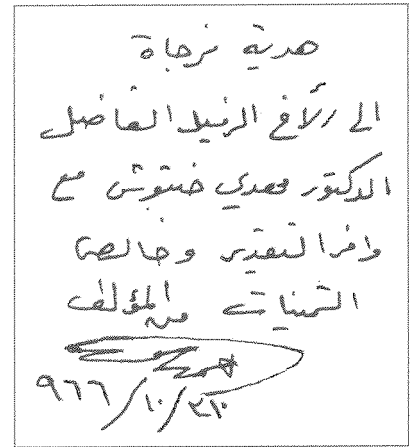 هدية مزجاة
الى الأخ الزميل الفاضل
الدكتور مهدي حنتوش مع
وافر التقدير وخالص
التمنيات من المؤلف
٩٦٦/١٠/